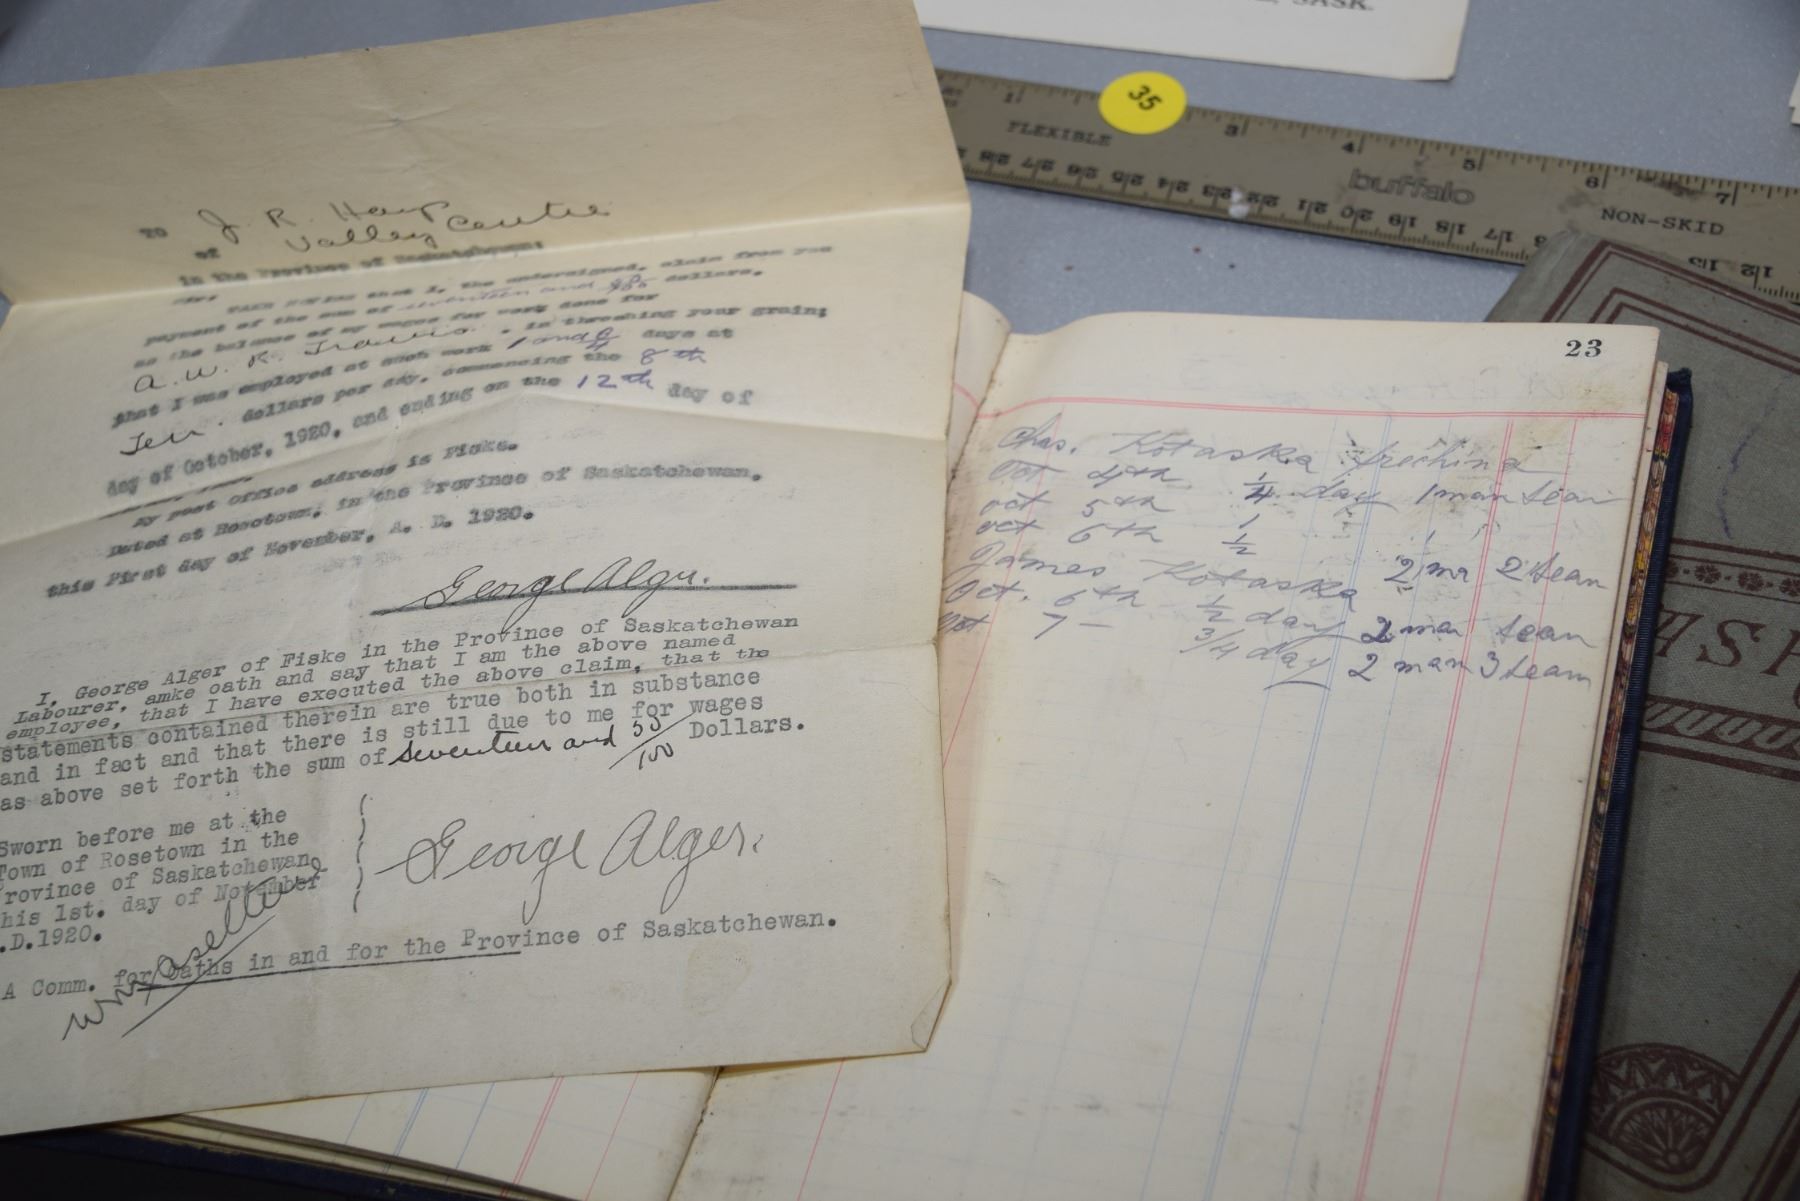 SASK.
35
1 3 4 5 6 7
FLEXIBLE
buffalo
NON-SKID
28 27 26 25 24 23 22 21 20 19 18 17 16 15 14 13 12
TO J. R. Harp
of Valley Centre
in the Province of Saskatchewan:
Sir,
TAKE NOTICE that I, the undersigned, claim from you
payment of the sum of seventeen and dollars,
as the balance of my wages for work done for
A. W. R. Travis. in threshing your grain;
that I was employed at such work 1 and days at
Ten. dollars per day, commencing the 8th
day of October, 1920, and ending on the 12th day of
My post office address is Fiske.
Dated at Rosetown, in the Province of Saskatchewan.
this First day of November, A. D. 1920.
George Alger.
I, George Alger of Fiske in the Province of Saskatchewan
Labourer, amke oath and say that I am the above named
employee, that I have executed the above claim, that the
statements contained therein are true both in substance
and in fact and that there is still due to me for wages
as above set forth the sum of seventeen and 50/100 Dollars.
Sworn before me at the
Town of Rosetown in the
Province of Saskatchewan
this 1st. day of November
A.D.1920.
George Alger.
A Comm. for Oaths in and for the Province of Saskatchewan.
23
Chas. Kotaska
Oct 4th 1/4 day 1 man team
oct 5th 1
oct 6th 1/2
James Kotaska 2 mn 2 team
Oct. 6th 1/2 day 2 man team
Oct 7 - 3/4 day 2 man 3 team